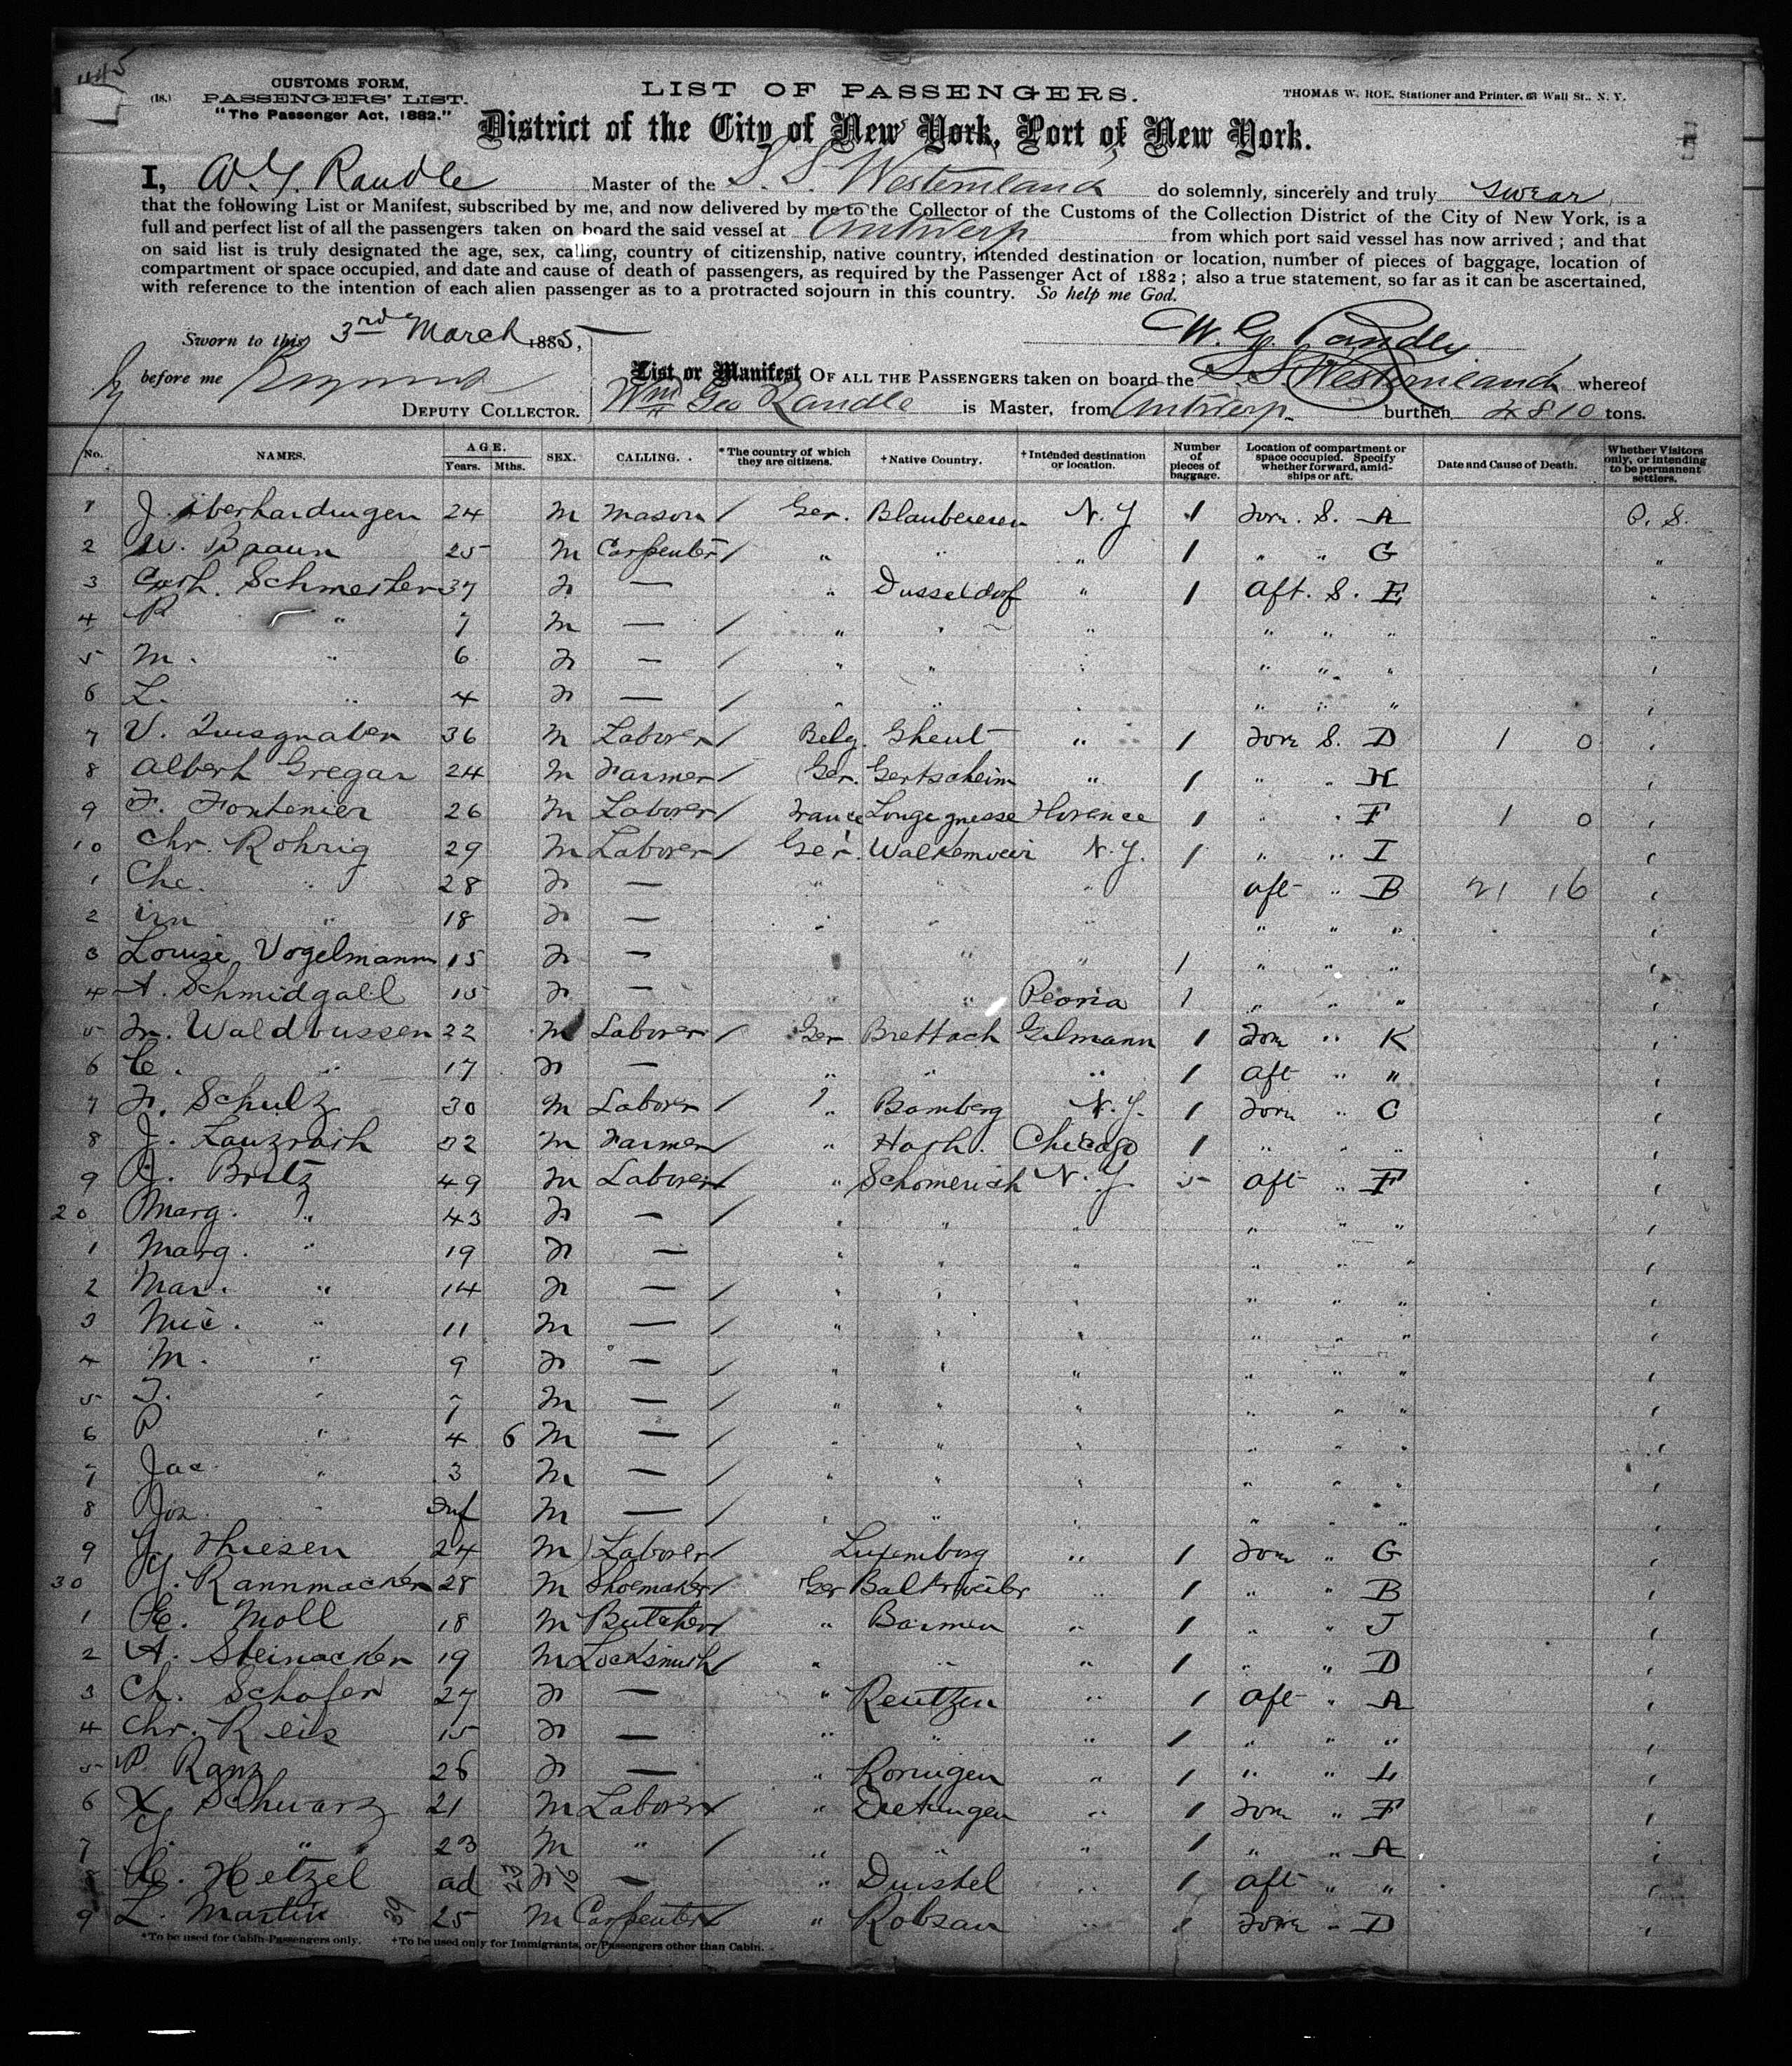 445
CUSTOMS FORM,
(18.) PASSENGERS' LIST.
"The Passenger Act, 1882."
LIST OF PASSENGERS.
THOMAS W. ROE, Stationer and Printer, 63 Wall St., N. Y.
District of the City of New York, Port of New York.
I, W. G. Randle Master of the S. S. Westernland do solemnly, sincerely and truly swear
that the following List or Manifest, subscribed by me, and now delivered by me to the Collector of the Customs of the Collection District of the City of New York, is a
full and perfect list of all the passengers taken on board the said vessel at Antwerp from which port said vessel has now arrived; and that
on said list is truly designated the age, sex, calling, country of citizenship, native country, intended destination or location, number of pieces of baggage, location of
compartment or space occupied, and date and cause of death of passengers, as required by the Passenger Act of 1882; also a true statement, so far as it can be ascertained,
with reference to the intention of each alien passenger as to a protracted sojourn in this country. So help me God.
Sworn to this 3rd March 1885,
W. G. Randle
before me
DEPUTY COLLECTOR.
List or Manifest OF ALL THE PASSENGERS taken on board the S. S. Westernland whereof
Wm Geo Randle is Master, from Antwerp burthen 4810 tons.
No. NAMES. AGE. Years. Mths. SEX. CALLING. *The country of which they are citizens. †Native Country. †Intended destination or location. Number of pieces of baggage. Location of compartment or space occupied. Specify whether forward, amidships or aft. Date and Cause of Death. Whether Visitors only, or intending to be permanent settlers.
1 J. Eberhardingen 24 M Mason / Ger. N.Y 1 Forw. S. A P. S.
2 W. Braun 25 M Carpenter / " " " 1 " " G "
3 Cath. Schmester 37 F — " Dusseldorf " 1 Aft. S. E "
4 R " 7 M — / " " " " " " "
5 M. " 6 F — / " " " " " " "
6 L. " 4 F — / " " " " " " "
7 V. 36 M Laborer / Belg. Ghent " 1 Forw S. D 1 0 "
8 Albert Gregar 24 M Farmer / Ger. Gertscheim " 1 " " H "
9 F. Fontenier 26 M Laborer / France Longegnesse Florence 1 " " F 1 0 "
10 Chr. Rohrig 29 M Laborer / Ger. N.Y. 1 " " I "
1 Che. " 28 F — " " " aft " B 21 16 "
2 " 18 F — " " " " " " "
3 Louise Vogelmann 15 F — " " " 1 " " " "
4 A. Schmidgall 15 F — " " Peoria 1 " " " "
5 Fr. Waldbussen 22 M Laborer / Ger Brettach Gilmann 1 Forw " K "
6 C. " 17 F — " " " 1 Aft " " "
7 F. Schulz 30 M Laborer / " Bamberg N.Y. 1 Forw " C "
8 J. Lanzrath 22 M Farmer / " Chicago 1 " " " "
9 J. Britz 49 M Laborer / " Schomerich N.Y. 5 Aft " F "
20 Marg. " 43 F — / " " " " " " "
1 Marg. " 19 F — " " " " " " "
2 Mar. " 14 F — / " " " " " " "
3 Mic. " 11 M — / " " " " " " "
4 M. " 9 F — / " " " " " " "
5 " 7 M — / " " " " " " "
6 P " 4 6 M — / " " " " " " "
7 Jac. " 3 M — / " " " " " " "
8 Jos. " Inf M — / " " " " " " "
9 Thiesen 24 M Laborer / Luxemborg " 1 Forw " G "
30 Rannmacher 28 M Shoemaker / Ger Balkweiler " 1 " " B "
1 C. Moll 18 M Butcher / " Barmen " 1 " " J "
2 A. Steinacker 19 M Locksmith / " " " 1 " " D "
3 Ch. Schafer 27 F — " Reutzen " 1 Aft " A "
4 Chr. Reis 15 F — " " " 1 " " " "
5 P. Ranz 26 F — " Roringen " 1 " " L "
6 X. Schwarz 21 M Laborer / " " 1 Forw " F "
7 " 23 M " / " " " 1 " " A "
8 C. Hetzel ad F — " " 1 Aft " " "
9 L. Martin 39 25 M Carpenter / " Robsan " 1 Forw " D "
*To be used for Cabin Passengers only. †To be used only for Immigrants, or Passengers other than Cabin.